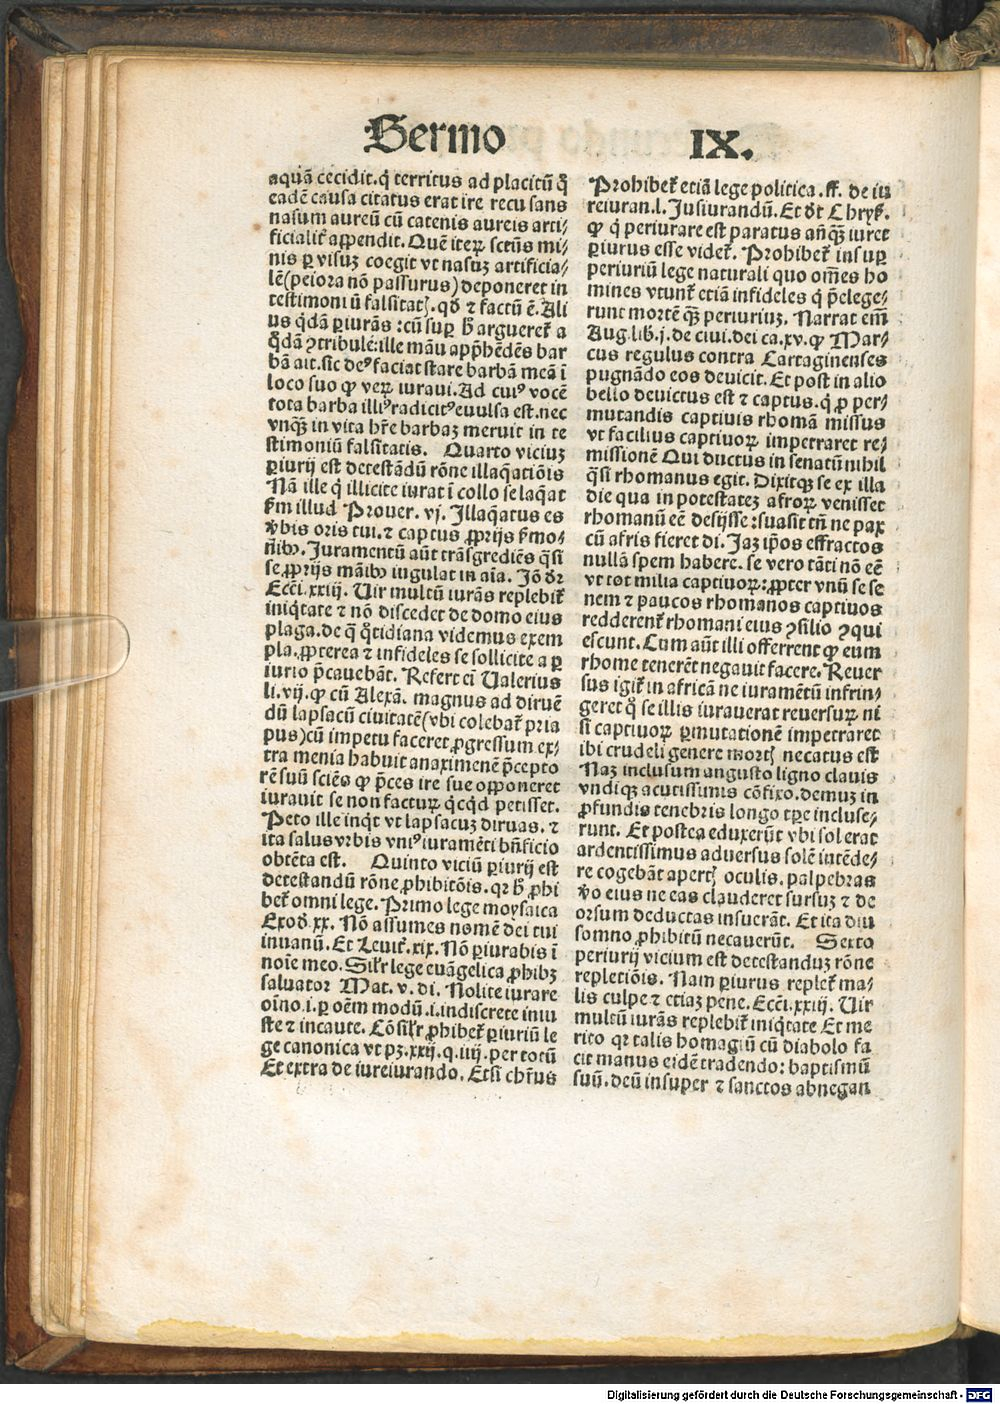 Sermo IX.
aquā cecidit. q̇ territus ad placitū ꝙ̄
eadē causa citatus erat ire recusans
nasum aureū cū catenis aureis arti⸗
ficialiť appendit. Quē iteꝝ sctūs mi⸗
nis ꝑ visuꝫ coegit vt nasuꝫ artificia⸗
lē (peiora nō passurus) deponeret in
testimoniū falsitatꝭ. qd̓ ⁊ factū ē. Ali
us qd̓ā ꝑiurās: cū suꝑ h̓ arguereť a
q̇dā ꝯtribule: ille māu app̄hēdēs bar
bā ait. sic deꝰ faciat stare barbā meā ī
loco suo ꝙ veꝝ iuraui. Ad cuiꝰ vocē
tota barba illiꝰ radicitꝰ euulsa est. nec
vnqꝫ in vita hr̄e barbaꝫ meruit in te
stimoniū falsitatis. Quarto viciuꝫ
ꝑiurij est detestādū rōne illaq̇atiōis
Nā ille q̇ illicite iurat ī collo se laq̇at
ẜm illud Prouer. vj. Illaq̇atus es
v̓bis oris tui. ⁊ captus ꝓprijs ẜmo⸗
nibꝰ. Iuramentū aūt trāsgrediēs q̇si
se ꝓprijs māibꝰ iugulat in aīa. Iō dr̄
Ecci. xxiij. Uir multū iurās replebiť
iniq̇tate ⁊ nō discedet de domo eius
plaga. de q̄ q̊tidiana videmus exem
pla. ꝓpterea ⁊ infideles se sollicite a ꝑ
iurio p̄cauebāt. Refert ei Ualerius
li. vij. ꝙ cū Alexā. magnus ad diruē
dū lapsacū ciuitatē (vbi colebať pria
pus) cū impetu faceret ꝓgressum ex⸗
tra menia habuit anaximenē p̄cepto
rē suū sciēs ꝙ p̄ces ire sue opponeret
iurauit se non factuꝝ q̇cq̇d petisset.
Peto ille inq̇t vt lapsacuꝫ diruas. ⁊
ita salus vrbis vniꝰ iuramēti bn̄ficio
obtēta est. Quinto viciū ꝑiurij est
detestandū rōne ꝓhibitōis. qꝛ h̓ ꝓhi
beť omni lege. Primo lege moysaica
Exod̓. xx. Nō assumes nomē dei tui
inuanū. Et Leuiť. xix. Nō ꝑiurabis ī
noīe meo. Silr̄ lege euāgelica ꝓhibꝫ
saluator Mat. v. di. Nolite iurare
oīno .i. ꝑ oēm modū .i. indiscrete iniu
ste ⁊ incaute. Cōsilr̄ ꝓhibeť ꝑiuriū le
ge canonica vt pꝫ. xxij. q. iiij. per totū
Et extra de iureiurando. Etsi chr̄us
Prohibeť etiā lege politica. ff. de iu
reiuran. l. Iusiurandū. Et d̓t Chryẜ.
ꝙ q̇ periurare est paratus añqꝫ iuret
ꝑiurus esse videť. Prohibeť insuꝑ
periuriū lege naturali quo om̄es ho
mines vtunť etiā infideles q̇ p̄elege⸗
runt mortē qꝫ periuriuꝫ. Narrat em̄
Aug. lib. j. de ciui. dei ca. xv. ꝙ Mar⸗
cus regulus contra Cartaginenses
pugnādo eos deuicit. Et post in alio
bello deuictus est ⁊ captus. q̇ ꝓ per⸗
mutandis captiuis rhomā missus
vt facilius captiuoꝝ impetraret re⸗
missionē Qui ductus in senatū nihil
q̇si rhomanus egit. Dixitqꝫ se ex illa
die qua in potestateꝫ afroꝝ venisset
rhomanū eē desijsse: suasit tn̄ ne pax
cū afris fieret di. Iaꝫ ip̄os effractos
nullā spem habere. se vero tāti nō eē
vt tot milia captiuoꝝ: ꝓpter vnū se se
nem ⁊ paucos rhomanos captiuos
redderenť rhomani eius ꝯsilio ꝯqui
escunt. Cum aūt illi offerrent ꝙ eum
rhome tenerēt negauit facere. Reuer
sus igiť in africā ne iuramētū infrin⸗
geret ꝙ se illis iurauerat reuersuꝝ ni
si captiuoꝝ ꝑmutationē impetraret
ibi crudeli genere mortꝭ necatus est
Naꝫ inclusum angusto ligno clauis
vndiqꝫ acutissimis cōfixo. demuꝫ in
ꝓfundis tenebris longo tꝑe incluse⸗
runt. Et postea eduxerūt vbi sol erat
ardentissimus aduersus solē intēde⸗
re cogebāt apertꝭ oculis. palpebras
v̓o eius ne eas clauderet sursuꝫ ⁊ de
orsum deductas insuerāt. Et ita diu
somno ꝓhibitū necauerūt. Sexto
periurij vicium est detestanduꝫ rōne
repletiōis. Nam ꝑiurus repleť ma⸗
lis culpe ⁊ etiaꝫ pene. Ecci. xxiij. Uir
multū iurās replebiť iniq̇tate Et me
rito qꝛ talis homagiū cū diabolo fa
cit manus eidē tradendo: baptismū
suū. deū insuper ⁊ sanctos abnegan
Digitalisierung gefördert durch die Deutsche Forschungsgemeinschaft - DFG